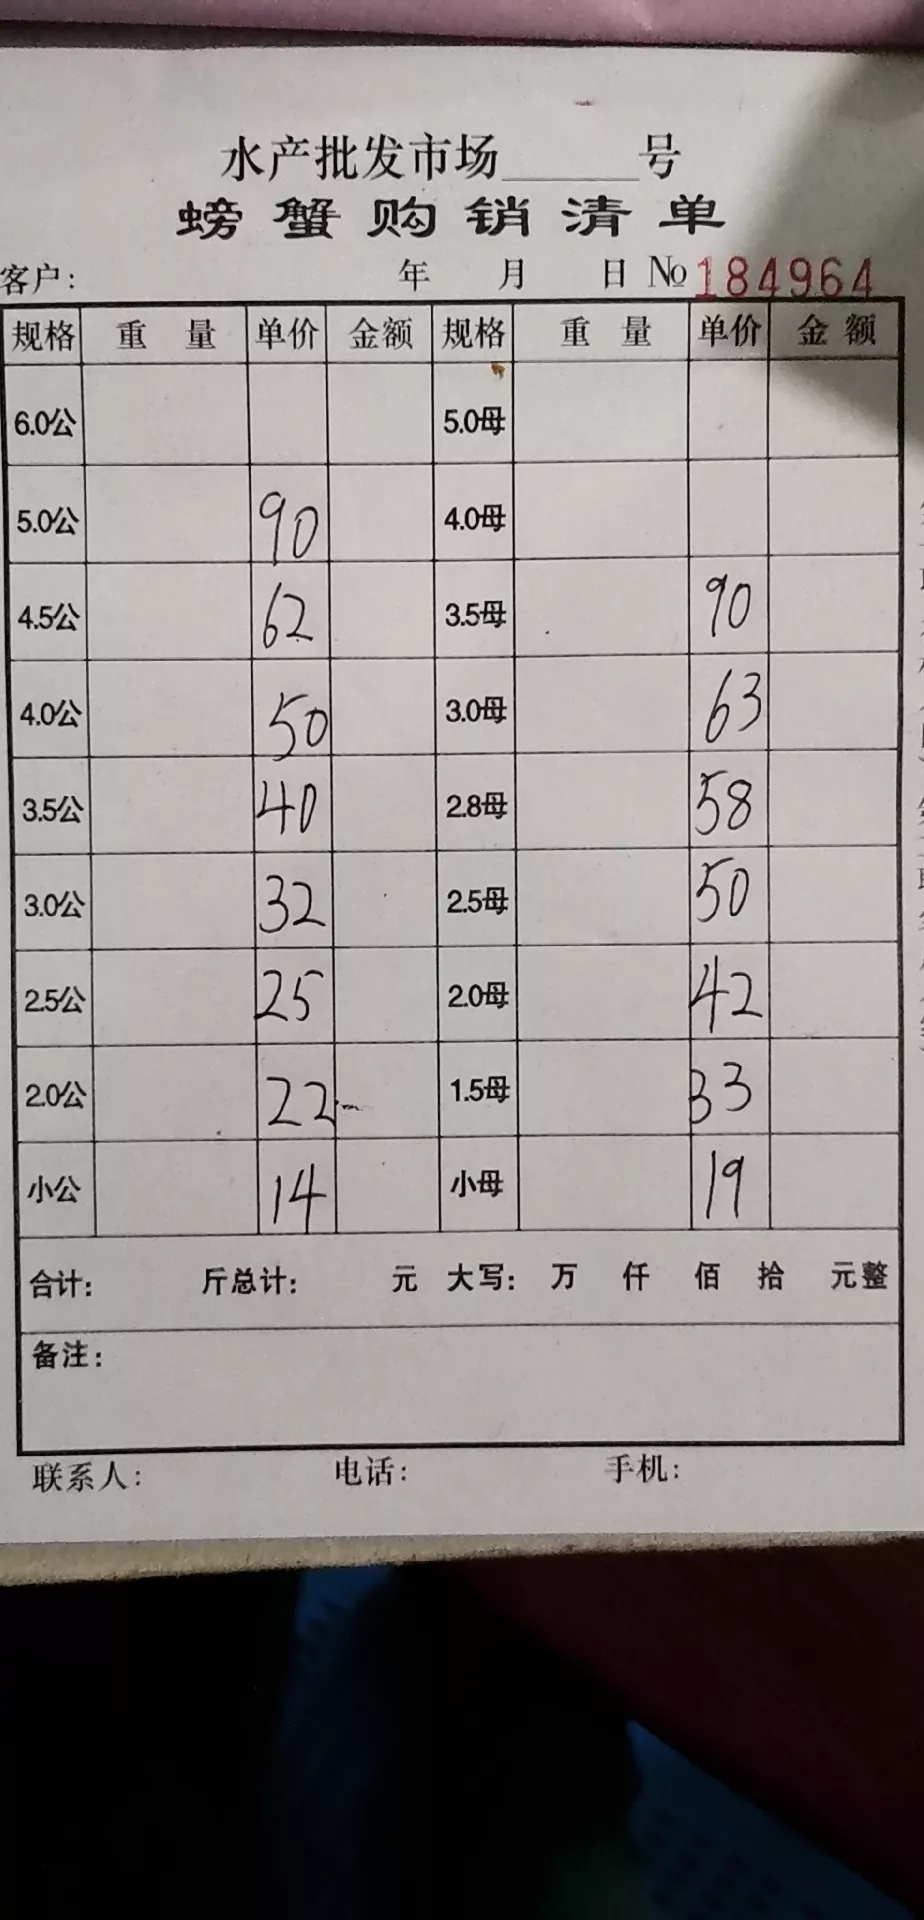 水产批发市场______号
螃蟹购销清单
客户： 年 月 日 №184964
规格 重量 单价 金额 规格 重量 单价 金额
6.0公 5.0母
5.0公 90 4.0母
4.5公 62 3.5母 90
4.0公 50 3.0母 63
3.5公 40 2.8母 58
3.0公 32 2.5母 50
2.5公 25 2.0母 42
2.0公 22 1.5母 33
小公 14 小母 19
合计： 斤总计： 元 大写： 万 仟 佰 拾 元整
备注：
联系人： 电话： 手机：